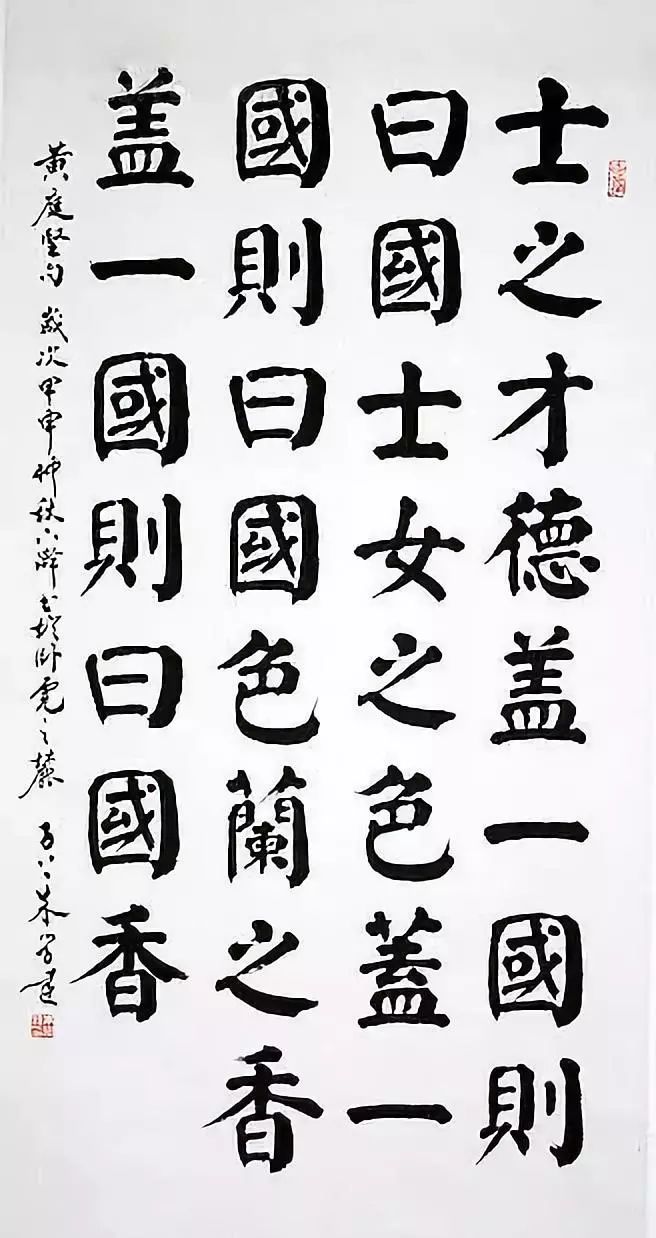 士之才德盖一國則
曰國士女之色蓋一
國則曰國色蘭之香
盖一國則曰國香
黄庭坚句 歲次甲申仲秋 书於卧虎之麓